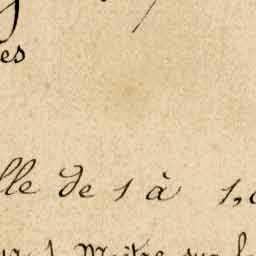 es
lle de 1 à 1,
1 Mètre sur